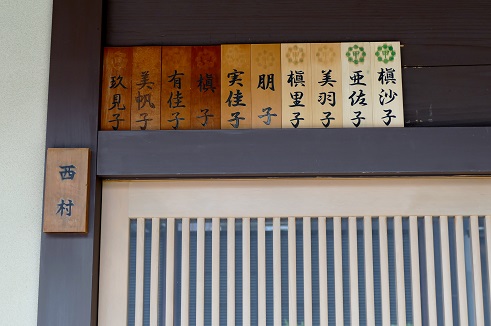 槇沙子
亜佐子
美羽子
槇里子
朋子
実佳子
槇子
有佳子
美帆子
玖見子
西村